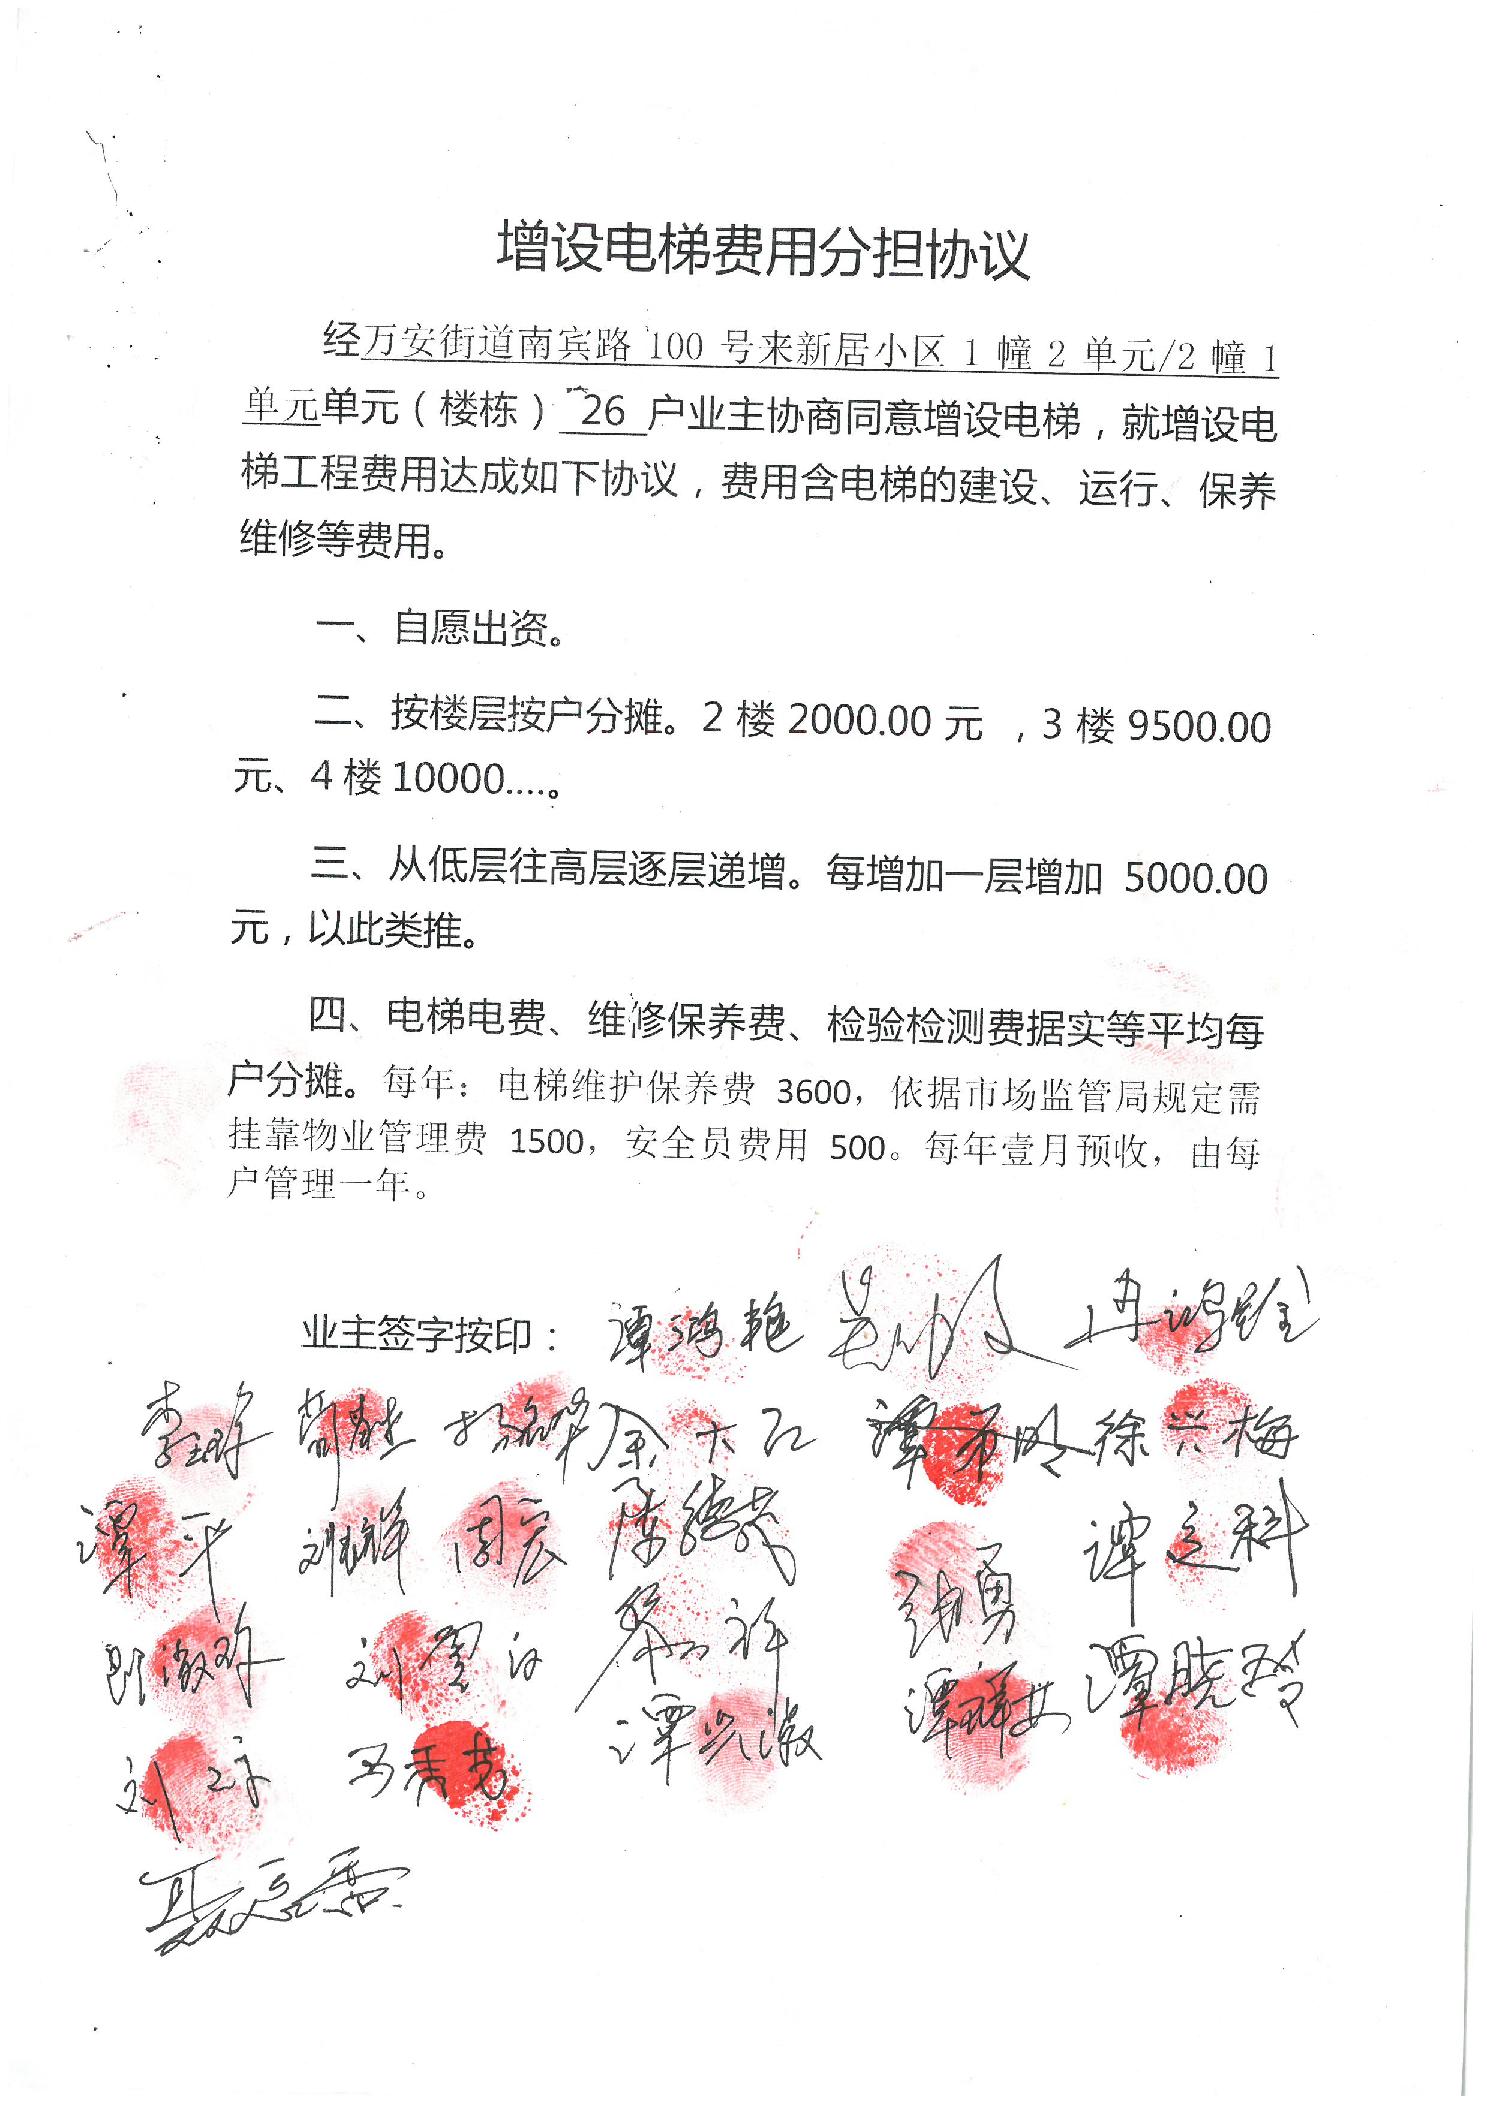 增设电梯费用分担协议
经万安街道南宾路 100 号来新居小区 1 幢 2 单元/2 幢 1
单元单元（楼栋） 26 户业主协商同意增设电梯，就增设电
梯工程费用达成如下协议，费用含电梯的建设、运行、保养
维修等费用。
一、自愿出资。
二、按楼层按户分摊。2 楼 2000.00 元 ，3 楼 9500.00
元、4 楼 10000....。
三、从低层往高层逐层递增。每增加一层增加 5000.00
元，以此类推。
四、电梯电费、维修保养费、检验检测费据实等平均每
户分摊。每年：电梯维护保养费 3600，依据市场监管局规定需
挂靠物业管理费 1500，安全员费用 500。每年壹月预收，由每
户管理一年。
业主签字按印： 谭鸿艳
余大江 谭小明 徐兴梅
谭平 刘祥 周宏 陈德芳
张勇 谭文科
黎许
谭兴淑 谭祥女 谭晓玲
马秀芳